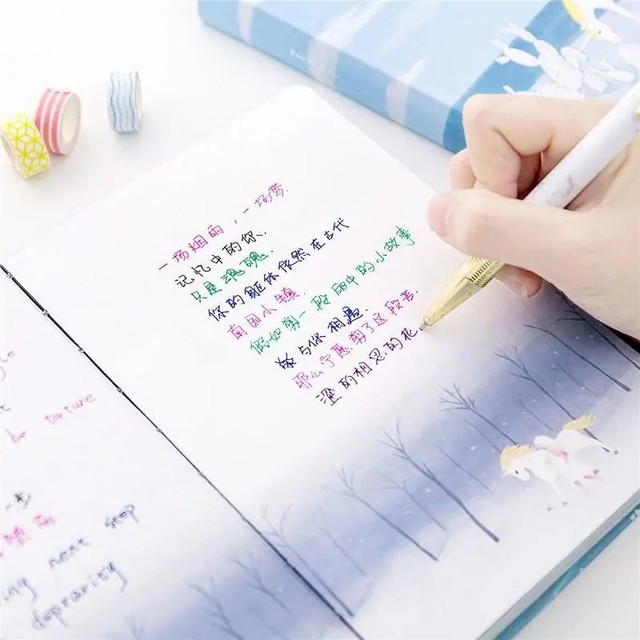 一场烟雨，一场梦.
记忆中的你、
只是魂魄.
你的躯体依然在古代
南国小镇.
假如剪一段雨中的小故事
就与你相遇
那么宁愿剪了这段去.
深的相思的花
be torture
ing next stop
depravity